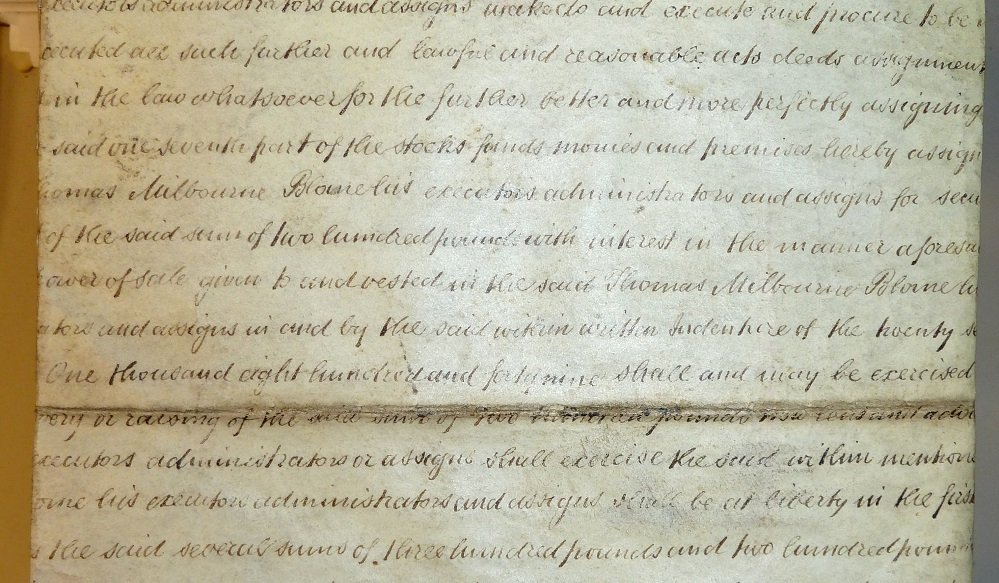 executors administrators and assigns make do and execute and procure to be
executed all such further and lawful and reasonable acts deeds assignmen
in the law whatsoever for the further better and more perfectly assigning
said one seventh part of the stocks funds monies and premises hereby assign
homas Milbourne Blome his executors administrators and assigns for secu
of the said sum of two hundred pounds with interest in the manner aforesa
power of sale given to and vested in the said Thomas Milbourne Blome
ators and assigns in and by the said within written Indenture of the twenty se
One thousand eight hundred and forty nine shall and may be exercised
very or raising of the said sum of two hundred pounds now lent and adva
executors administrators or assigns shall exercise the said within mentione
ome his executors administrators and assigns shall be at liberty in the first
the said several sums of three hundred pounds and two hundred poun